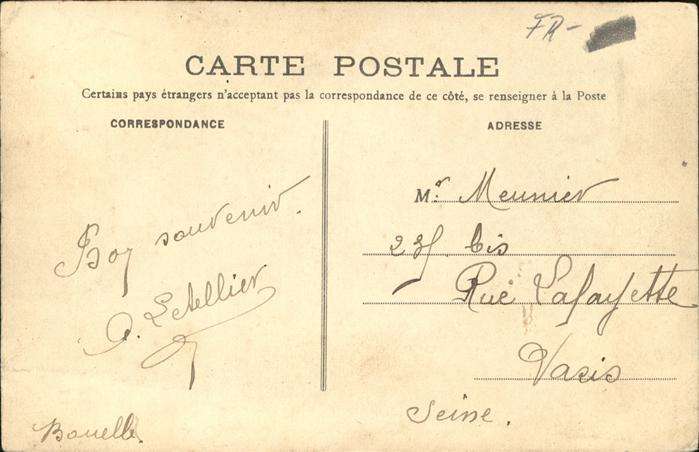 FR-
CARTE POSTALE
Certains pays étrangers n'acceptant pas la correspondance de ce côté, se renseigner à la Poste
CORRESPONDANCE
ADRESSE
Bon souvenir.
Letellier
Bouelle.
Mr Meunier
bis
Rue Lafayette
Paris
Seine.